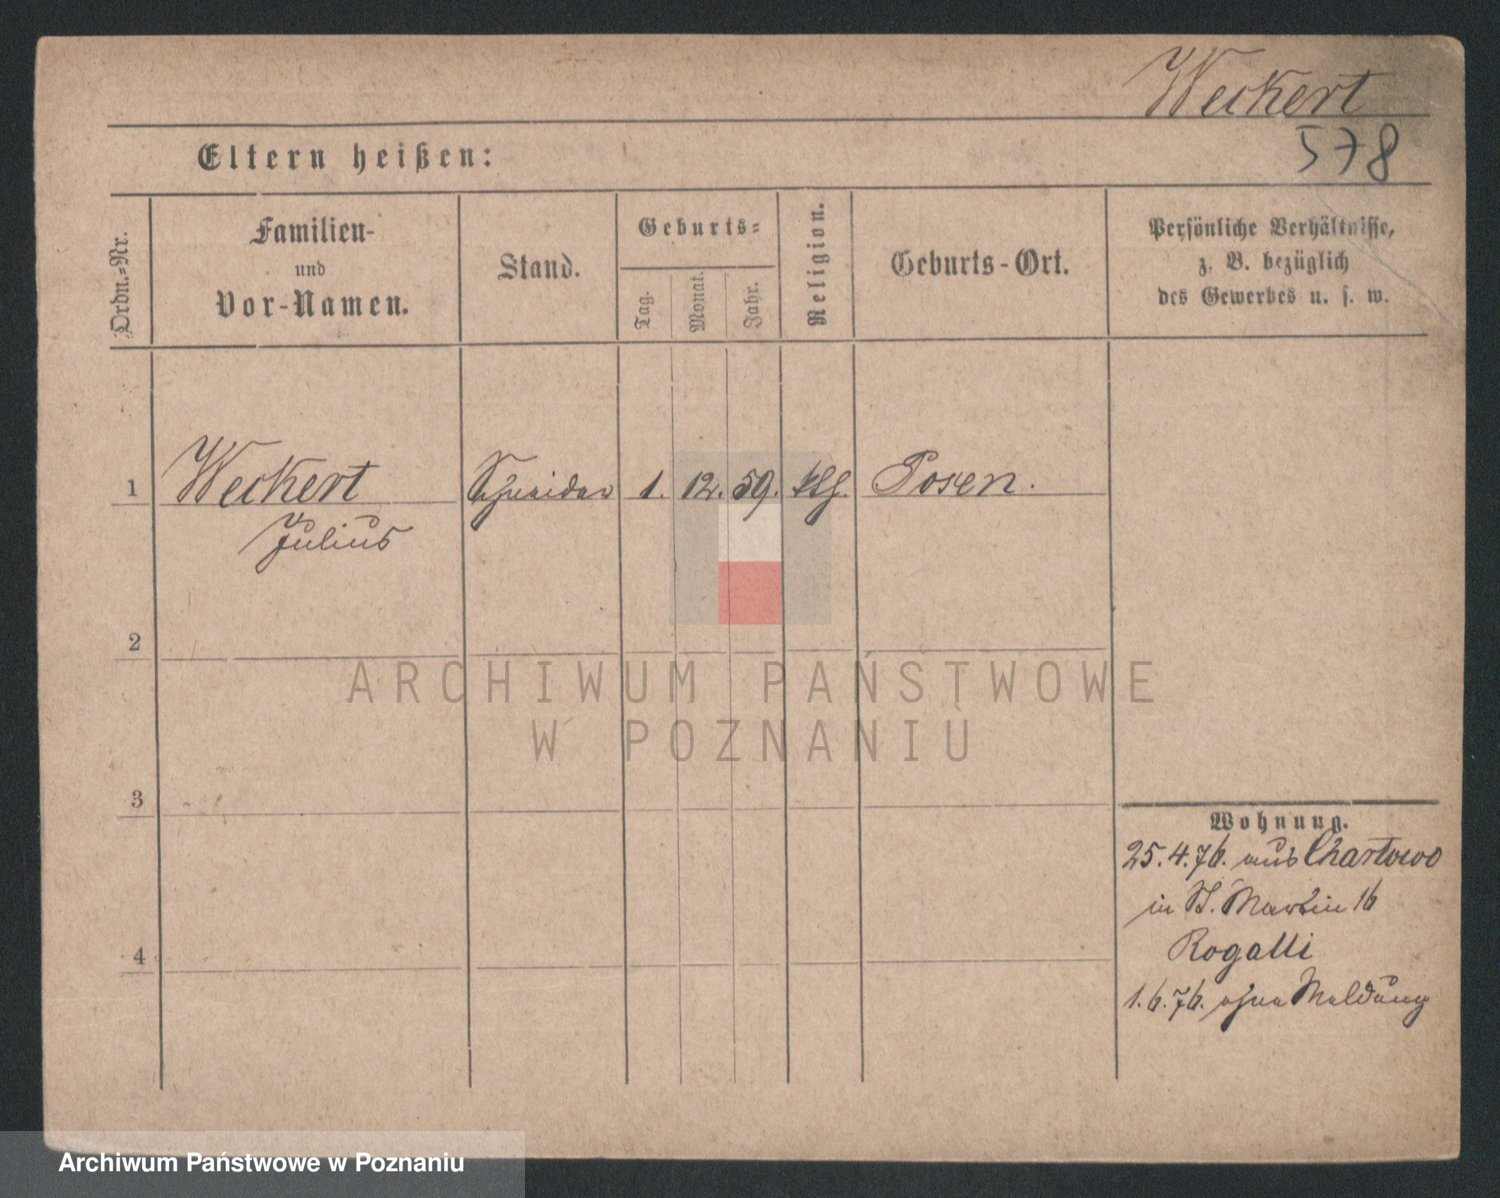 Weckert
578
Eltern heißen:
Ordn.-Nr.
Familien-
und
Vor-Namen.
Stand.
Geburts-
Tag.
Monat.
Jahr.
Religion.
Geburts-Ort.
Persönliche Verhältnisse,
z. B. bezüglich
des Gewerbes u. s. w.
1 Weckert Schneider 1. 12. 59. ktg. Posen.
Julius
2
ARCHIWUM PAŃSTWOWE
W POZNANIU
3
Wohnung.
25.4.76. aus Chartowo
in St. Martin 16
Rogalli
4
1.6.76. ohne Meldung
Archiwum Państwowe w Poznaniu